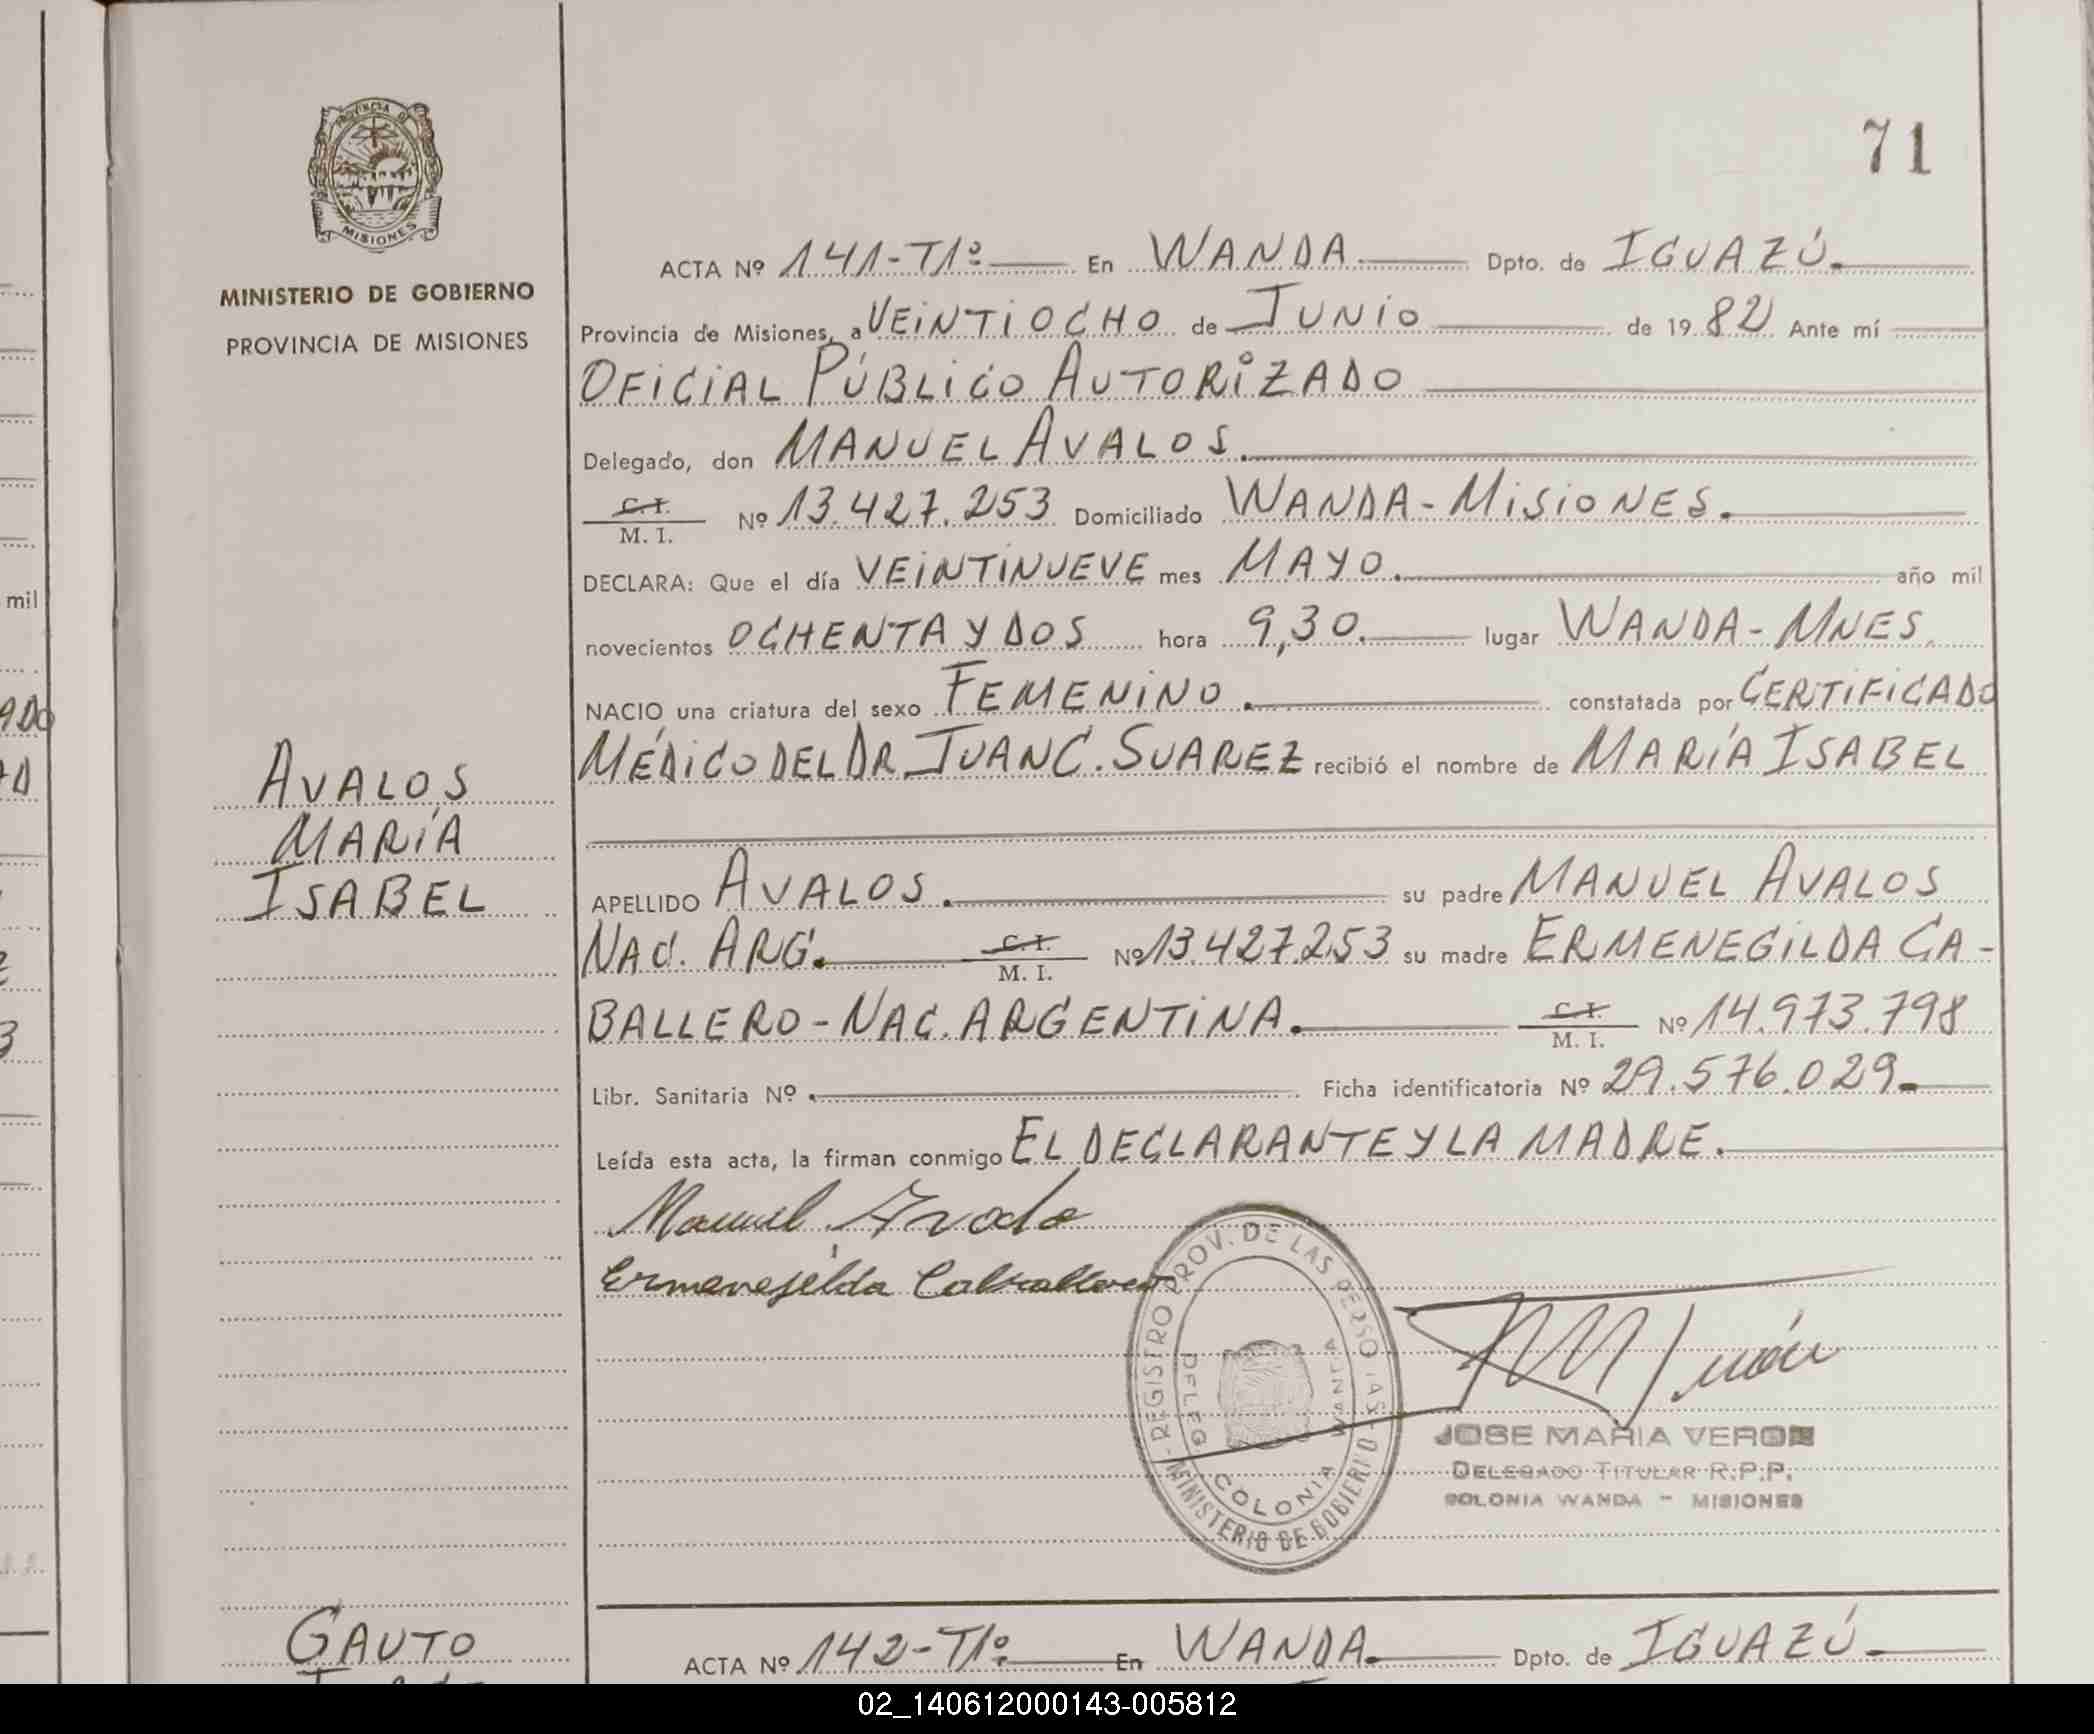 PROVINCIA DE
MISIONES
MINISTERIO DE GOBIERNO
PROVINCIA DE MISIONES
mil
AVALOS
MARÍA
ISABEL
GAUTO
71
ACTA Nº 141-T1º En WANDA. Dpto. de IGUAZÚ.
Provincia de Misiones, a VEINTIOCHO de JUNIO de 1982 Ante mí
OFICIAL PÚBLICO AUTORIZADO
Delegado, don MANUEL AVALOS.
C.I.
M. I. Nº 13.427.253 Domiciliado WANDA-MISIONES.
DECLARA: Que el día VEINTINUEVE mes MAYO. año mil
novecientos OCHENTA Y DOS hora 9,30. lugar WANDA-MNES.
NACIO una criatura del sexo FEMENINO. constatada por CERTIFICADO
MÉDICO DEL DR. JUAN C. SUAREZ recibió el nombre de MARÍA ISABEL
APELLIDO AVALOS. su padre MANUEL AVALOS
NAC. ARG. C.I. M. I. Nº 13.427.253 su madre ERMENEGILDA CA-
BALLERO-NAC. ARGENTINA. C.I. M. I. Nº 14.973.798
Libr. Sanitaria Nº Ficha identificatoria Nº 29.576.029.
Leída esta acta, la firman conmigo EL DECLARANTE Y LA MADRE.
Manuel Avalo
Ermenegilda Caballero
REGISTRO PROV. DE LAS PERSONAS
MINISTERIO DE GOBIERNO
DELEG. COLONIA WANDA
JOSE MARIA VERON
DELEGADO TITULAR R.P.P.
COLONIA WANDA - MISIONES
ACTA Nº 142-T1º. En WANDA. Dpto. de IGUAZÚ.
02_140612000143-005812